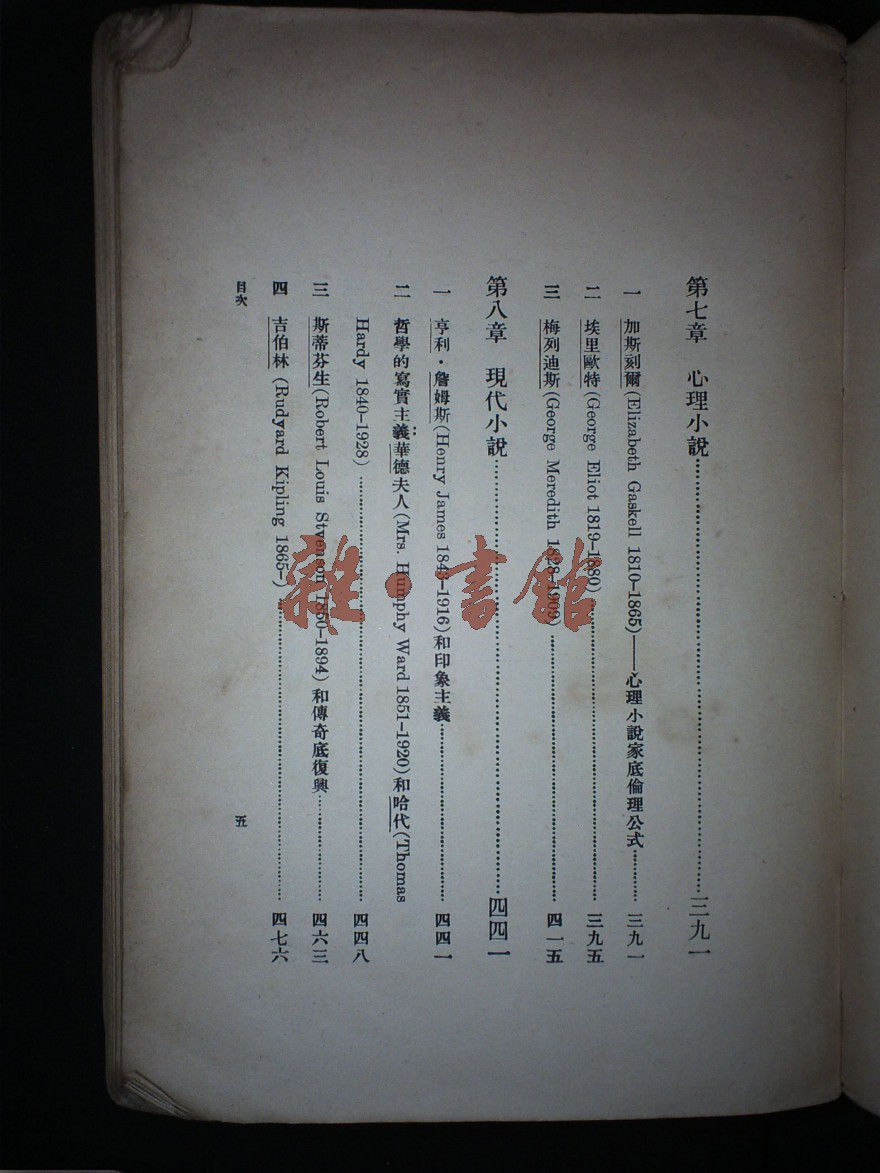 第七章　心理小說……三九一
一　加斯刻爾(Elizabeth Gaskell 1810–1865)——心理小說家底倫理公式……三九一
二　埃里歐特(George Eliot 1819–1880)……三九五
三　梅列迪斯(George Meredith 1828–1909)……四一五
第八章　現代小說……四四一
一　亨利·詹姆斯(Henry James 1843–1916)和印象主義……四四一
二　哲學的寫實主義:華德夫人(Mrs. Humphy Ward 1851–1920)和哈代(Thomas
Hardy 1840–1928)……四四八
三　斯蒂芬生(Robert Louis Stvenson 1850–1894)和傳奇底復興……四六三
四　吉伯林(Rudyard Kipling 1865–)……四七六
目次　五
雜·書館